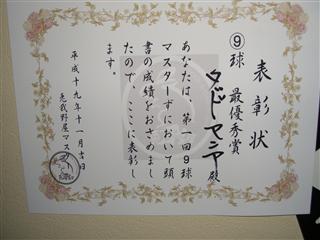 表彰状
⑨球 最優秀賞
タドマシヤ殿
あなたは、第一回9球
マスターずにおいて頭
書の成績をおさめまし
たので、ここに表彰し
ます。
平成十九年十一月吉日